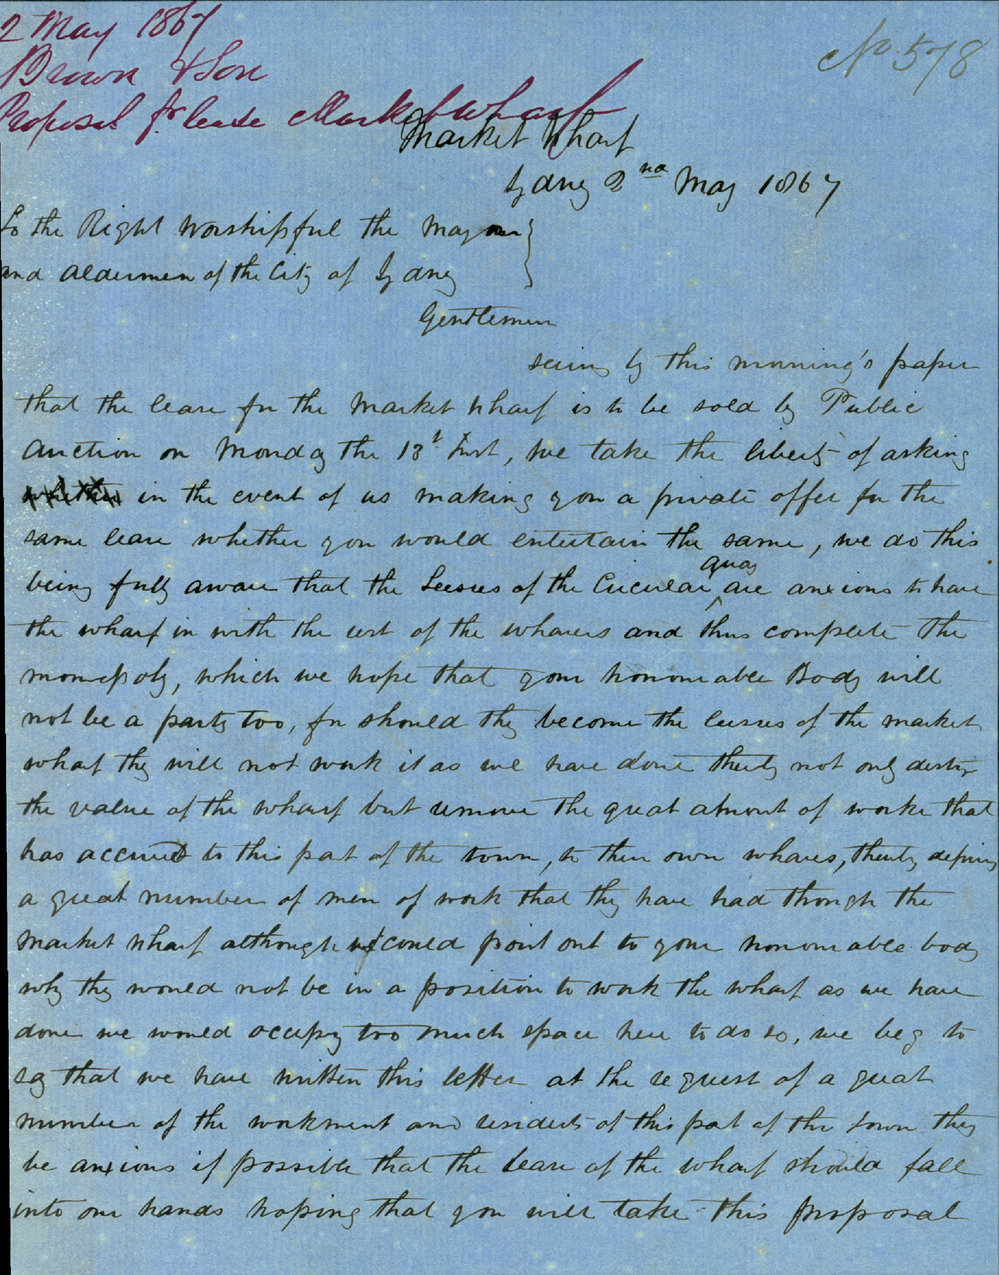 2 May 1867
Brown & Son
Proposal for lease Market Wharf
No 578
Market Wharf
Sydney 2nd May 1867
To the Right Worshipful the Mayor
and Aldermen of the City of Sydney
Gentlemen
seeing by this morning's paper
that the lease for the Market Wharf is to be sold by Public
Auction on Monday the 13t Inst, we take the liberty of asking
in the event of us making you a private offer for the
same lease whether you would entertain the same, we do this
being fully aware that the Lessees of the Circular Quay are anxious to have
the wharf in with the rest of the wharves and thus complete the
monopoly, which we hope that your honourable Body will
not be a party too, for should they become the lessees of the market
wharf they will not work it as we have done thereby not only destroy
the value of the wharf but remove the great amount of worke that
has accrued to this part of the town, to their own wharves, thereby depriving
a great number of men of work that they have had through the
Market Wharf although we could point out to your honourable body
why they would not be in a position to work the wharf as we have
done we would occupy too much space here to do so, we beg to
say that we have written this letter at the request of a great
number of the workment and residents of this part of the town they
be anxious if possible that the lease of the wharf should fall
into our hands hoping that you will take this proposal